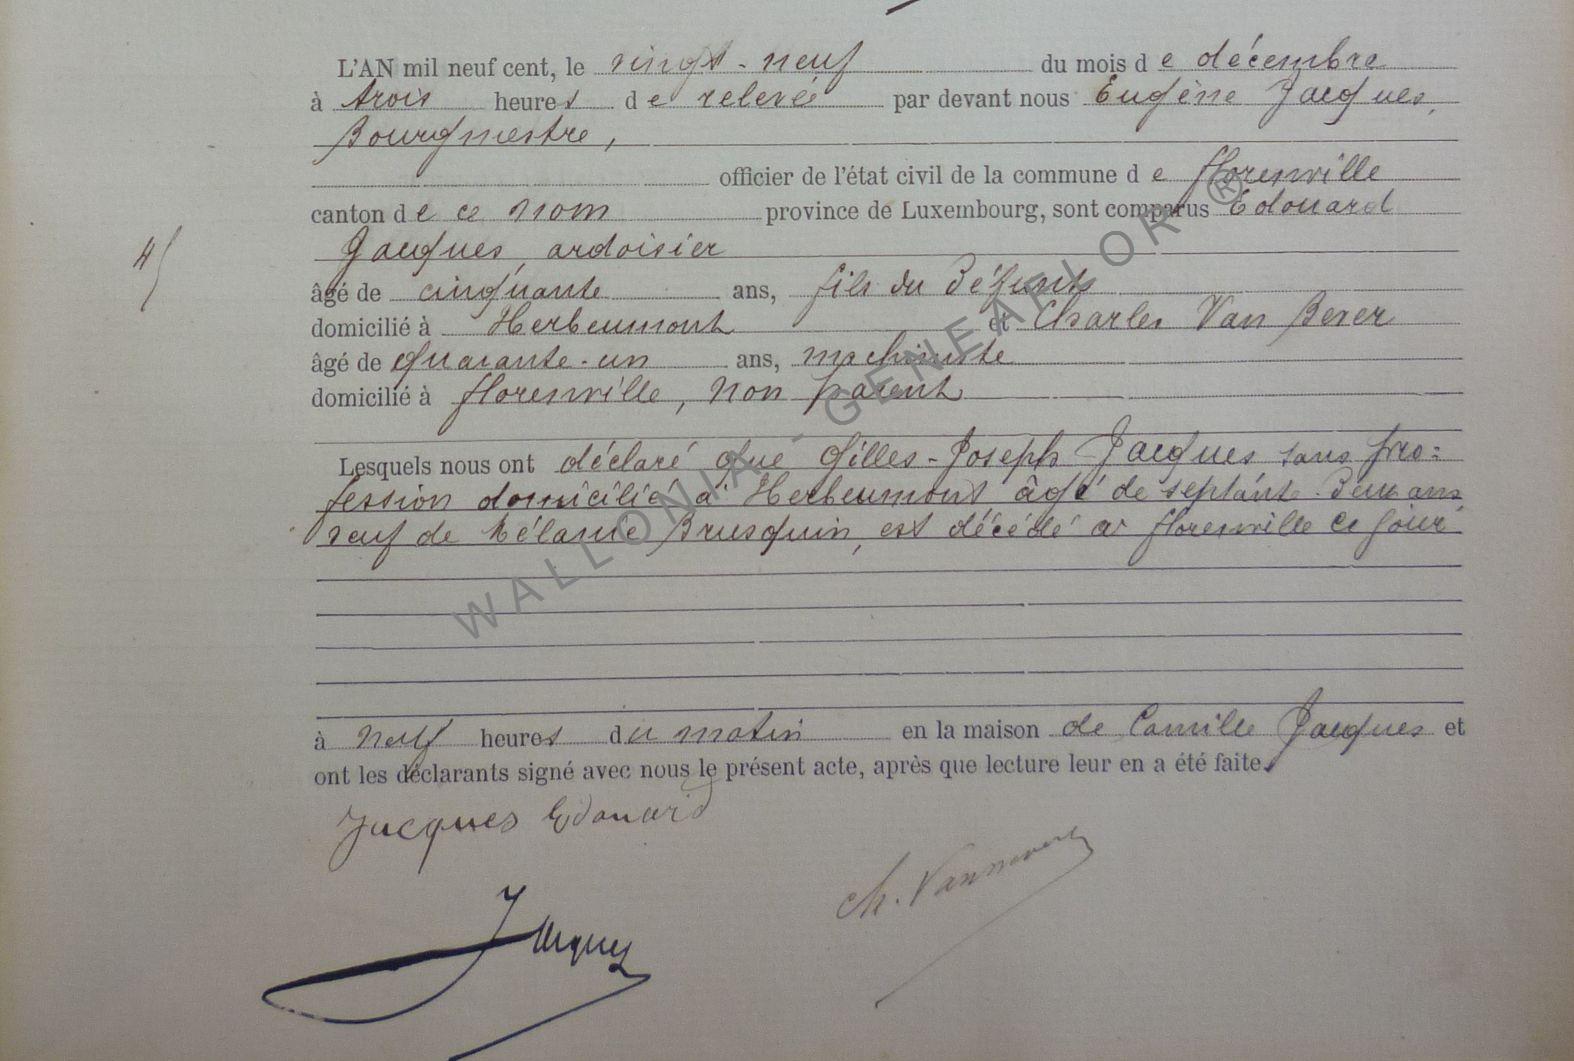 L'AN mil neuf cent, le vingt-neuf du mois de décembre
à trois heures de relevée par devant nous Eugène Jacques,
Bourgmestre,
officier de l'état civil de la commune de Florenville
canton de ce nom province de Luxembourg, sont comparus Edouard
Jacques, ardoisier
âgé de cinquante ans, fils du défunt
domicilié à Herbeumont et Charles Van
âgé de quarante-un ans, machiniste
domicilié à Florenville, non parent
45
Lesquels nous ont déclaré que Gilles-Joseph Jacques sans pro=
fession domicilié à Herbeumont âgé de septante-deux ans
veuf de Mélanie Brusquin, est décédé à Florenville ce jour
à neuf heures du matin en la maison de Camille Jacques et
ont les déclarants signé avec nous le présent acte, après que lecture leur en a été faite.
Jacques Edouard
Ch.
Jacques
WALLONIA - GENEAFLOR ®